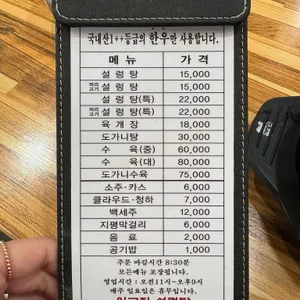 국내산1++등급의 한우만 사용합니다.
메뉴 가격
설렁탕 15,000
머리고기 설렁탕 15,000
설렁탕(특) 22,000
머리고기 설렁탕(특) 22,000
육개장 18,000
도가니탕 30,000
수육(중) 60,000
수육(대) 80,000
도가니수육 75,000
소주·카스 6,000
클라우드·청하 7,000
백세주 12,000
지평막걸리 6,000
음료 2,000
공기밥 1,000
주문 마감시간 8:30분
모든메뉴 포장됩니다.
영업시간 : 오전11시~오후9시
매주 일요일은 휴무입니다.